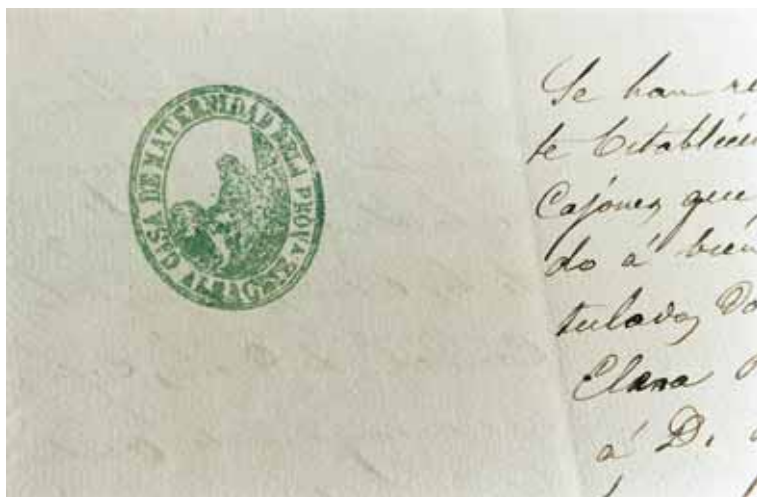 SA DE MATERNIDAD DE LA PROVª
D ALBACETE
Se han re
te Establecim
Cajones que
do á bien
tulada, Do
Clara
á D.